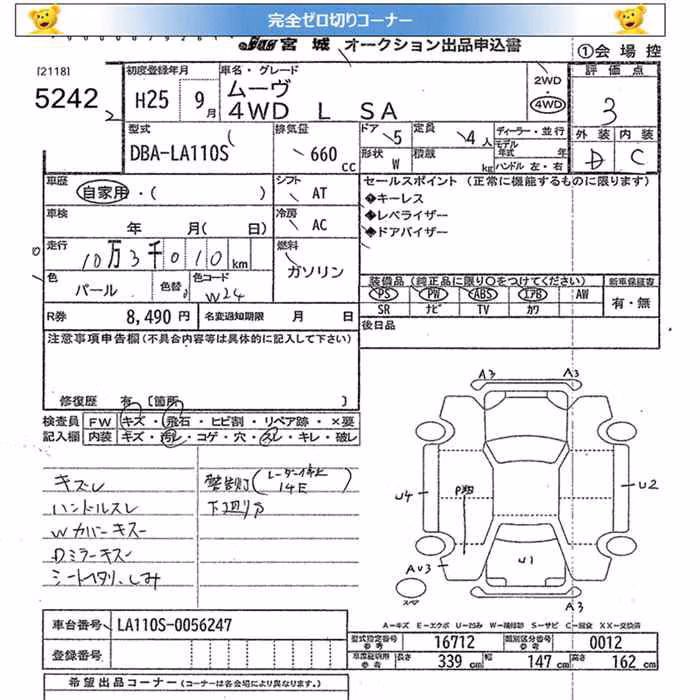 完全ゼロ切りコーナー
宮城 オークション出品申込書
①会場控
[2118]
5242
初度登録年月
H25 9月
車名・グレード
ムーヴ
4WD L SA
2WD
4WD
評価点
3
外装 内装
D C
型式
DBA-LA110S
排気量
660 CC
ドア 5
定員 4人
形状 W
積載 kg
ディーラー・並行
モデル年式 年
ハンドル 左・右
車歴
自家用・( )
シフト
AT
セールスポイント (正常に機能するものに限ります)
◆キーレス
◆レベライザー
◆ドアバイザー
車検
年 月( 日)
冷房
AC
走行
10万3千010km
燃料
ガソリン
色
パール
色替
色コード
W24
装備品 (純正品に限り○をつけてください)
新車保証書
PS PW ABS エアB AW
有・無
SR ナビ TV カワ
R券 8,490円
名変通知期限 月 日
後日品
注意事項申告欄(不具合内容等は具体的に記入して下さい)
修復歴 有 [箇所 ]
検査員
記入欄
FW キズ・飛石・ヒビ割・リペア跡・×要
内装 キズ・汚レ・コゲ・穴・スレ・キレ・破レ
キズレ
ハンドルスレ
Wカバーキズー
Dミラーキズー
シートヘタリ、しみ
警告灯(レーダー停止
14E)
下廻りサ
A3 A3
U4
U2
P飛
U1
AU3
A3
スペア
A-キズ E-エクボ U-凹み W-補修跡 S-サビ C-腐食 XX-交換済
車台番号 LA110S-0056247
登録番号
型式指定番号 参考 16712
類別区分番号 参考 0012
車庫証明用 参考 長さ 339 cm 幅 147 cm 高さ 162 cm
希望出品コーナー (コーナーは各会場により異なります。)